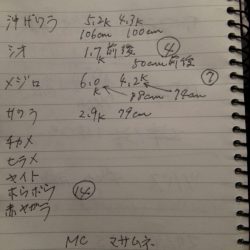 沖ザワラ 5.2k 4.3k
106cm 100cm
シオ 1.7k前後 ④
50cm前後
メジロ 6.0k 4.2k ⑦
88cm 74cm
サワラ 2.9k 79cm
チカメ
ヒラメ
エイト
ホウボウ ⑭
赤ヤガラ
MC マサムネ